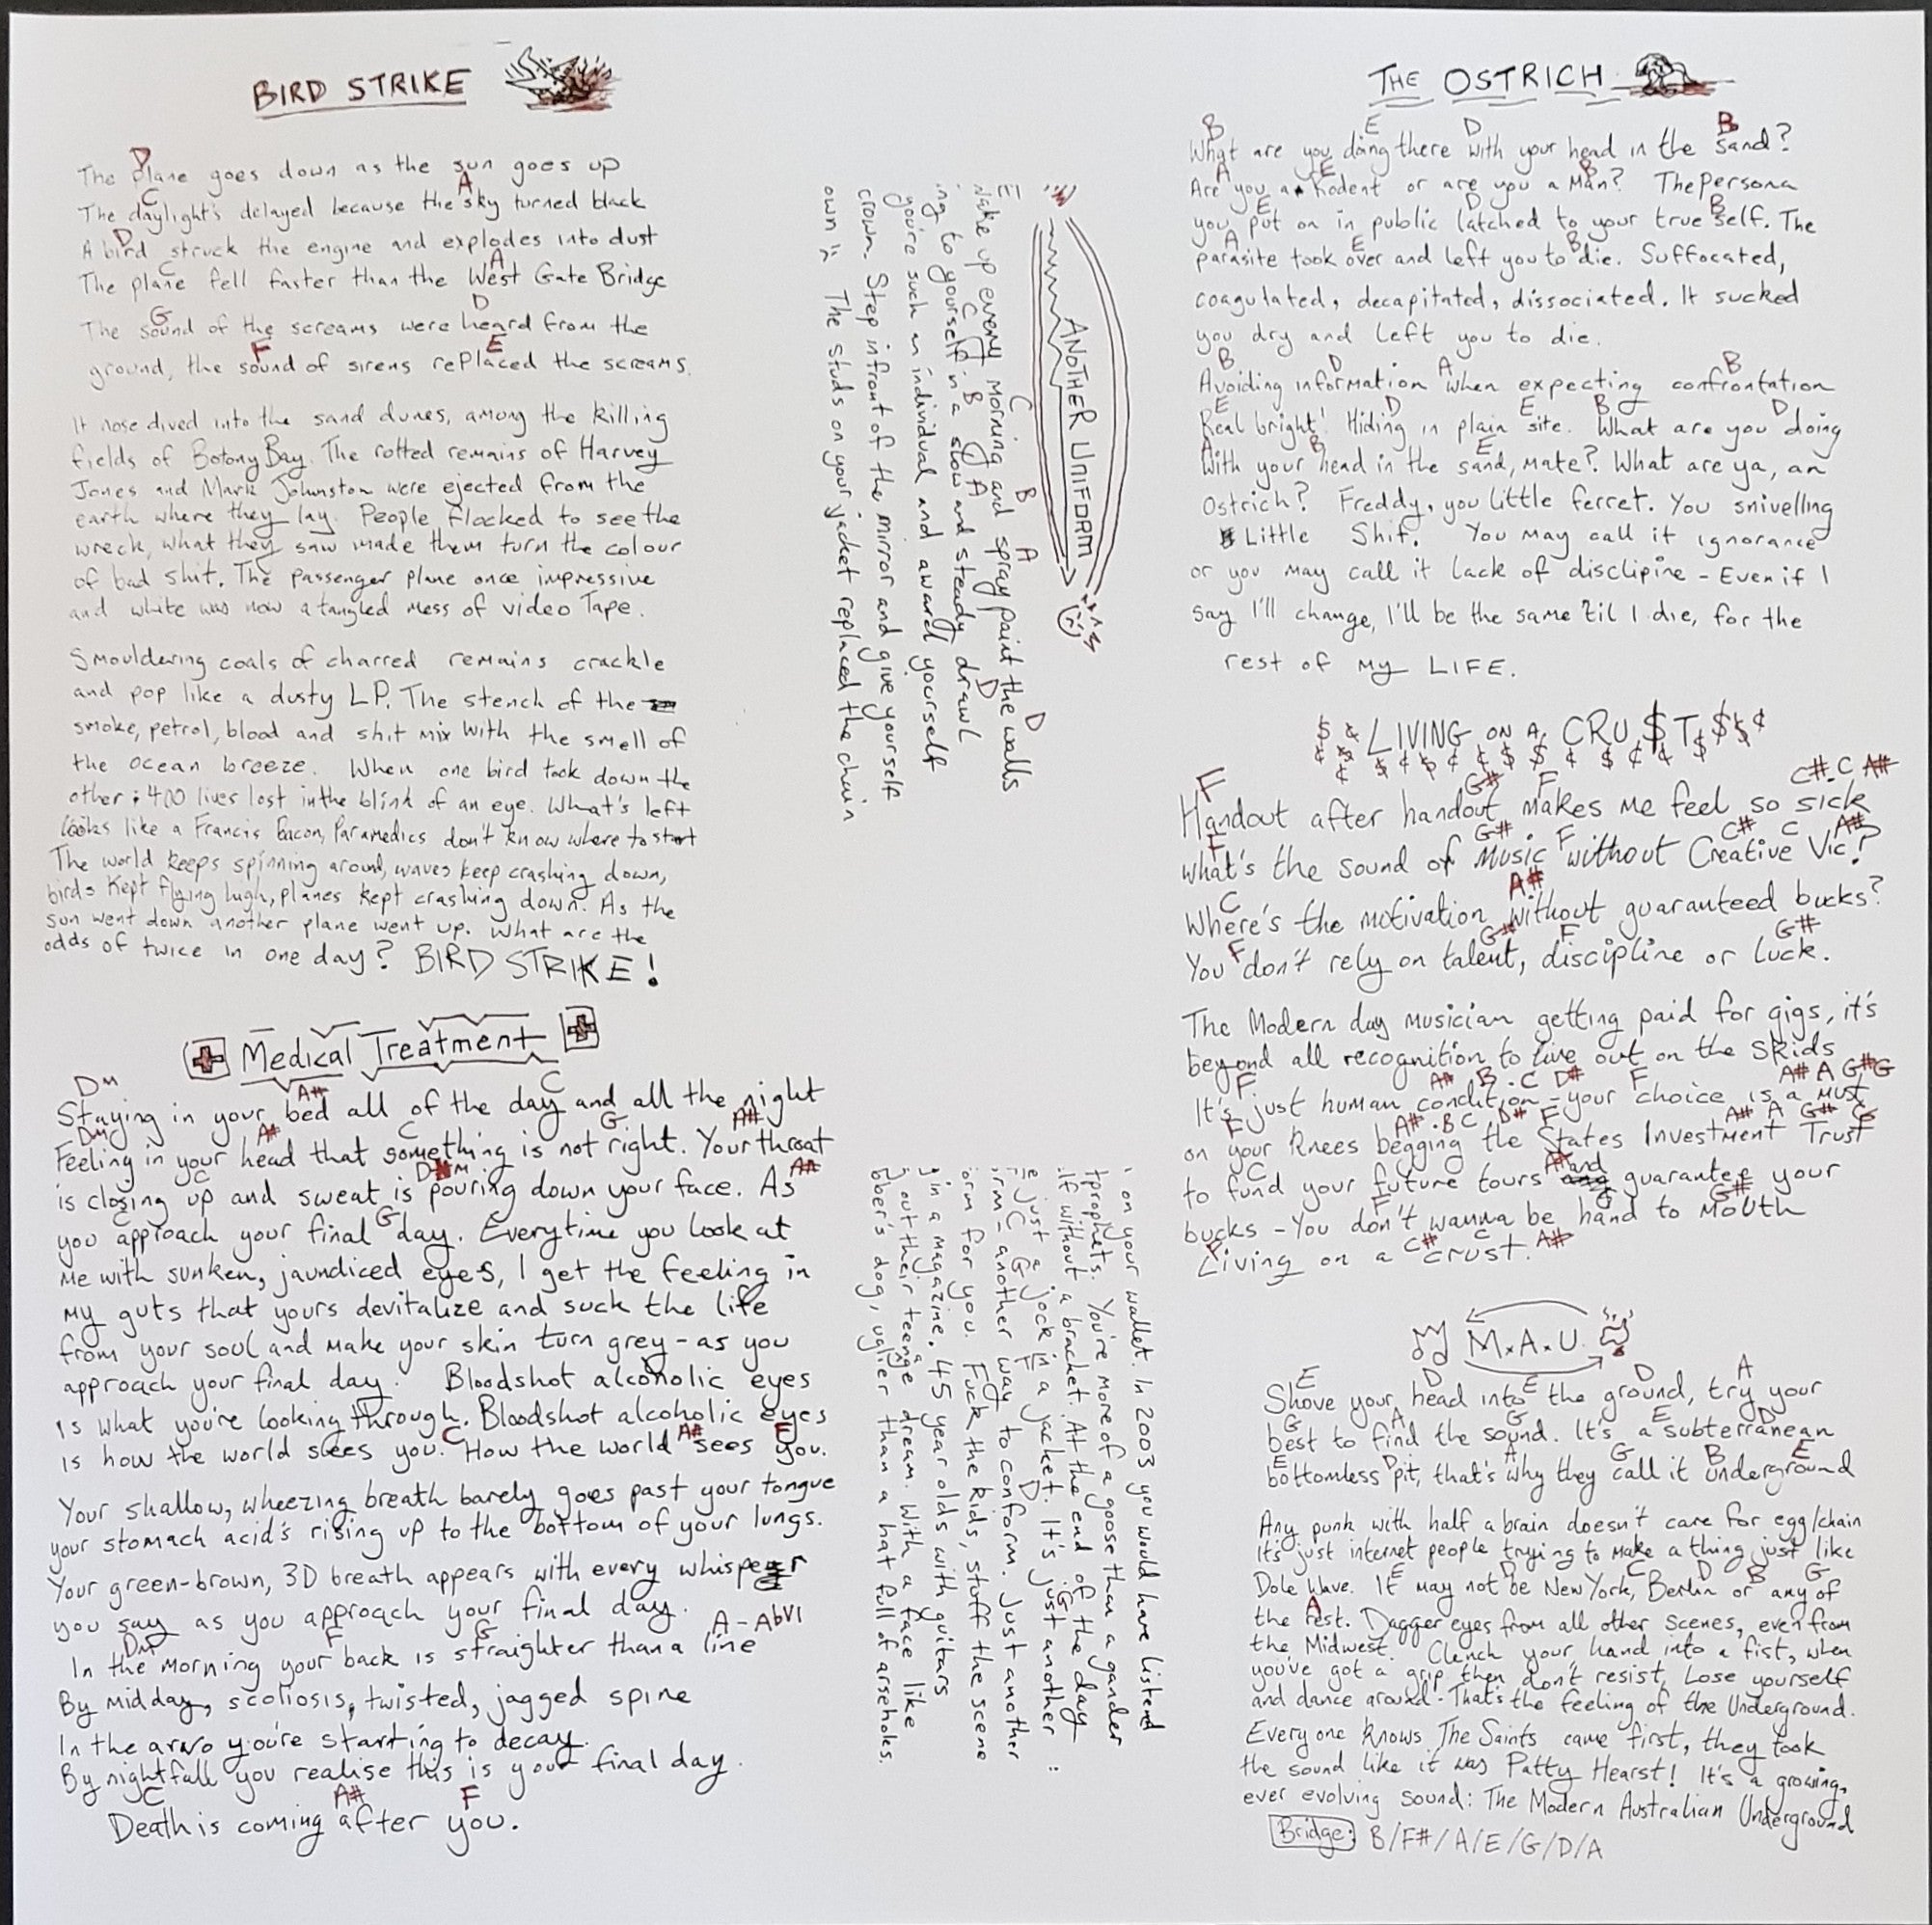 BIRD STRIKE
D
The plane goes down as the sun goes up
C A
The daylight's delayed because the sky turned black
D
A bird struck the engine and explodes into dust
C A
The plane fell faster than the West Gate Bridge
G D
The sound of the screams were heard from the
F E
ground, the sound of sirens replaced the screams.
It nose dived into the sand dunes, among the killing
fields of Botony Bay. The rotted remains of Harvey
Jones and Mark Johnston were ejected from the
earth where they lay. People flocked to see the
wreck, what they saw made them turn the colour
of bad shit. The passenger plane once impressive
and white was now a tangled mess of video Tape.
Smouldering coals of charred remains crackle
and pop like a dusty LP. The stench of the
smoke, petrol, blood and shit mix with the smell of
the ocean breeze. When one bird took down the
other: 400 lives lost in the blink of an eye. What's left
looks like a Francis Bacon, Paramedics don't know where to start
The world keeps spinning around, waves keep crashing down,
birds kept flying high, planes kept crashing down. As the
sun went down another plane went up. What are the
odds of twice in one day? BIRD STRIKE!
Medical Treatment
Dm A# C
Staying in your bed all of the day and all the night
Dm A# C G A#
Feeling in your head that something is not right. Your throat
C A#
is closing up and sweat is pouring down your face. As
C G
you approach your final day. Everytime you look at
me with sunken, jaundiced eyes, I get the feeling in
my guts that yours devitalize and suck the life
from your soul and make your skin turn grey - as you
approach your final day. Bloodshot alcoholic eyes
is what you're looking through. Bloodshot alcoholic eyes
C A# F
is how the world sees you. How the world sees you.
Your shallow, wheezing breath barely goes past your tongue
your stomach acid's rising up to the bottom of your lungs.
Your green-brown, 3D breath appears with every whisper
you say as you approach your final day.
Dm F G A - AbVI
In the morning your back is straighter than a line
By midday, scoliosis, twisted, jagged spine
In the arvo you're starting to decay.
By nightfall you realise this is your final day.
C A# F
Death is coming after you.
ANOTHER UNIFORM
E C B A D
Wake up every morning and spray paint the walls
C B G A D
ing to yourself in a slow and steady drawl
you're such an individual and award yourself
crown. Step infront of the mirror and give yourself
own ". The studs on your jacket replaced the chain
on your wallet. In 2003 you would have listend
tprophets. You're more of a goose than a gander
lf without a bracket. At the end of the day
e just a jock in a jacket. It's just another
C G F D G
irm - another way to conform. Just another
orm for you. Fuck the kids, stuff the scene
in a magazine. 45 year olds with guitars
out their teenage dream. With a face like
bber's dog, uglier than a hat full of arseholes.
THE OSTRICH
B E D B
What are you doing there with your head in the sand?
A E B
Are you a rodent or are you a Man? The persona
E D B
you put on in public latched to your true self. The
A E B
parasite took over and left you to die. Suffocated,
coagulated, decapitated, dissociated. It sucked
you dry and left you to die.
B D A B
Avoiding information when expecting confrontation
E D E B D
Real bright! Hiding in plain site. What are you doing
A B E
With your head in the sand, mate? What are ya, an
Ostrich? Freddy, you little ferret. You snivelling
Little Shit. You may call it ignorance
or you may call it lack of disclipine - Even if I
say I'll change, I'll be the same til I die, for the
rest of my LIFE.
LIVING ON A CRU$T
F G# F C# C A#
Handout after handout makes me feel so sick
F G# F C# C A#
What's the sound of Music without Creative Vic?
C A#
Where's the motivation without guaranteed bucks?
F G# F G#
You don't rely on talent, discipline or luck.
The Modern day musician getting paid for gigs, it's
beyond all recognition to live out on the skids
F A# B C D# F A# A G# G
It's just human condition - your choice is a must
F A# B C D# F A# A G# G
on your knees begging the States Investment Trust
C A#
to fund your future tours and guarantee your
F G#
bucks - You don't wanna be hand to mouth
F C# C A#
Living on a crust.
M.A.U.
E D E D A
Shove your head into the ground, try your
G A G E D
best to find the sound. It's a subterranean
E D A G B E
bottomless pit, that's why they call it underground
Any punk with half a brain doesn't care for egg/chain
It's just internet people trying to make a thing just like
E D C D B G
Dole Wave. It may not be New York, Berlin or any of
A
the rest. Dagger eyes from all other scenes, even from
the Midwest. Clench your hand into a fist, when
you've got a grip then don't resist, Lose yourself
and dance around - That's the feeling of the Underground.
Everyone knows The Saints came first, they took
the sound like it was Patty Hearst! It's a growing,
ever evolving sound: The Modern Australian Underground
Bridge: B/F#/A/E/G/D/A